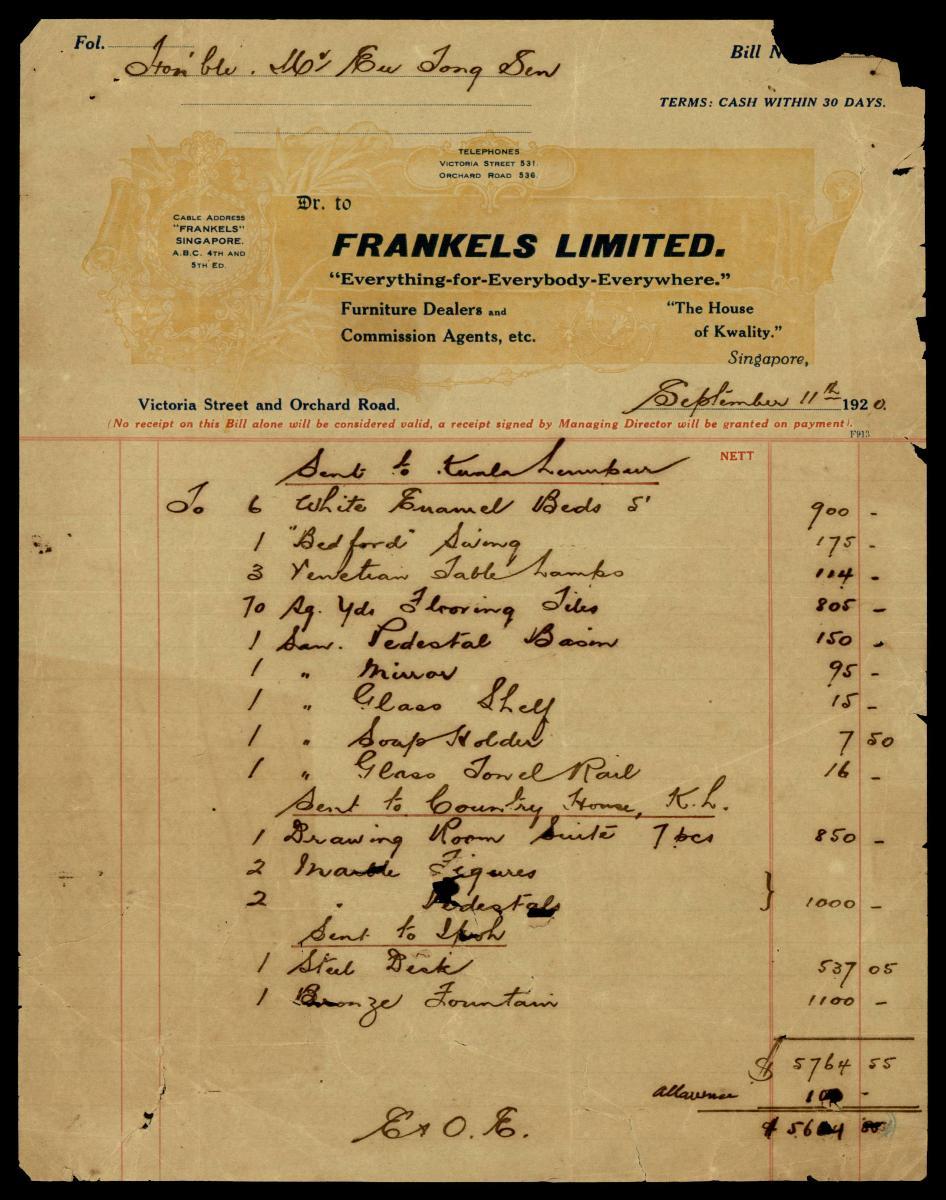 Fol.
Hon'ble. Mr Eu Tong Sen
Bill N
TERMS: CASH WITHIN 30 DAYS.
TELEPHONES
VICTORIA STREET 531.
ORCHARD ROAD 536.
CABLE ADDRESS
"FRANKELS"
SINGAPORE.
A.B.C. 4TH AND
5TH ED.
Dr. to
FRANKELS LIMITED.
"Everything-for-Everybody-Everywhere."
Furniture Dealers and "The House
Commission Agents, etc. of Kwality."
Singapore,
Victoria Street and Orchard Road. September 11th 1920.
(No receipt on this Bill alone will be considered valid, a receipt signed by Managing Director will be granted on payment).
F913
Sent to Kuala Lumpur NETT
To 6 White Enamel Beds 5' 900 -
1 "Bedford" Swing 175 -
3 Venetian Table Lamps 114 -
70 Sq. Yds Flooring Tiles 805 -
1 San. Pedestal Basin 150 -
1 " Mirror 95 -
1 " Glass Shelf 15 -
1 " Soap Holder 7 50
1 " Glass Towel Rail 16 -
Sent to Country House, K.L.
1 Drawing Room Suite 7 pcs 850 -
2 Marble Figures
2 " Pedestals } 1000 -
Sent to Ipoh
1 Steel Desk 537 05
1 Bronze Fountain 1100 -
$ 5764 55
Allowance
E & O. E.